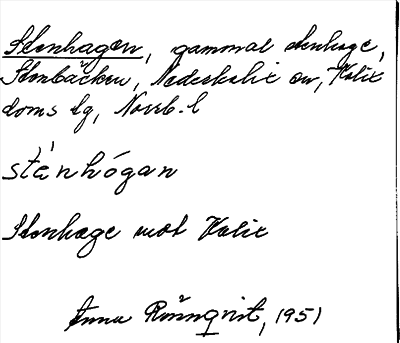 Stenhagen, gammal stenhage,
Stenbäcken, Nederkalix sn, Kalix
doms lg, Norrb. l
sténhógan
Stenhage mot Kalix
Anna Rönnqvist, 1951